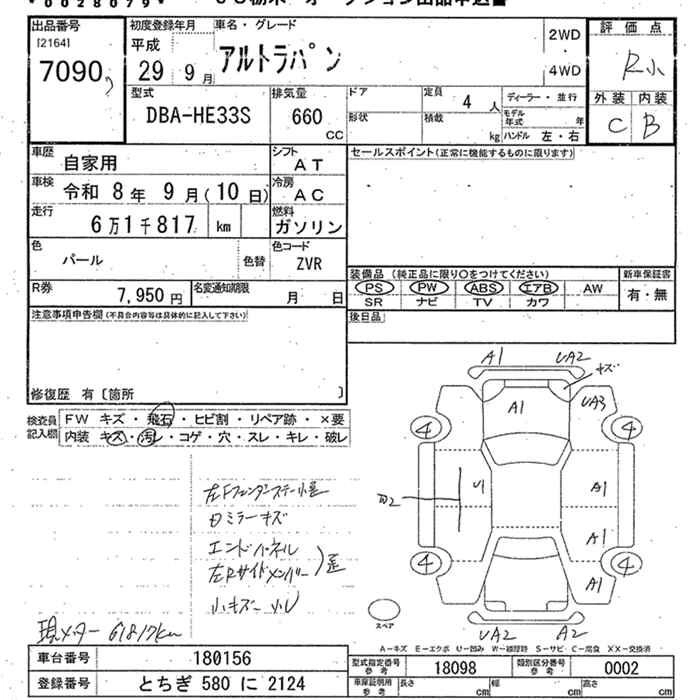 * 0 0 2 8 0 7 9 *
出品番号
[2164]
7090
初度登録年月
平成
29 9 月
車名・グレード
アルトラパン
2WD
4WD
評価点
R小
外装 内装
C B
型式
DBA-HE33S
排気量
660
CC
ドア
形状
定員
4 人
積載
kg
ディーラー・並行
モデル年式 年
ハンドル 左・右
車歴
自家用
シフト
AT
車検
令和 8 年 9 月 ( 10 日)
冷房
AC
走行
6万1千817 km
燃料
ガソリン
色
パール
色替
色コード
ZVR
R券
7,950 円
名変通知期限
月 日
セールスポイント(正常に機能するものに限ります)
装備品 (純正品に限り○をつけてください)
PS PW ABS エアB AW
SR ナビ TV カワ
新車保証書
有・無
後日品
注意事項申告欄(不具合内容等は具体的に記入して下さい)
修復歴 有〔箇所 〕
検査員記入欄
FW キズ・飛石・ヒビ割・リペア跡・×要
内装 キズ・汚レ・コゲ・穴・スレ・キレ・破レ
左Fフェンダーステー小歪
ミラーキズ
エンドパネル
左Rサイドメンバー
歪
小キズ 小U
現メーター 61817km
A1 UA2
キズ
A1
UA3
4 4
U1
A1
A1
A1
4 4
UA2 A2
スペア
A-キズ E-エクボ U-凹み W-補修跡 S-サビ C-腐食 XX-交換済
車台番号
180156
登録番号
とちぎ 580 に 2124
型式指定番号
参考
18098
類別区分番号
参考
0002
車庫証明用
参考
長さ cm 幅 cm 高さ cm